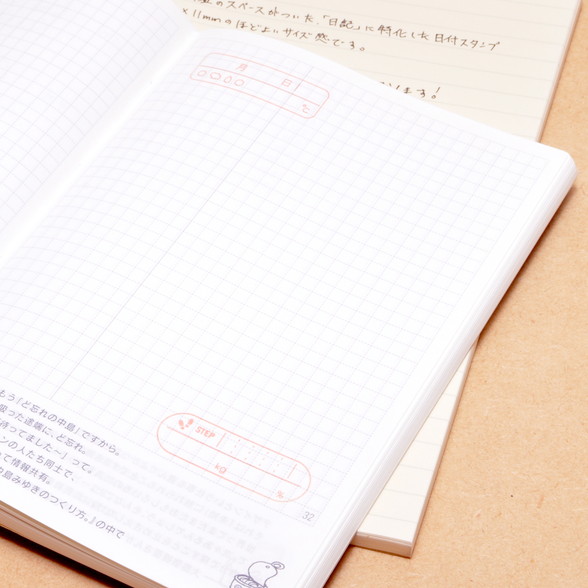 のスペースがついた、「日記」に特化した日付スタンプ
×11mmのほどよいサイズ感です。
ます！
月 日
℃
もう『ど忘れの中島』ですから。
吸った途端に、ど忘れ。
待ってました〜」って。
ンの人たち同士で、
て情報共有。
中島みゆきのつくり方。』の中で
STEP
kg
%
32